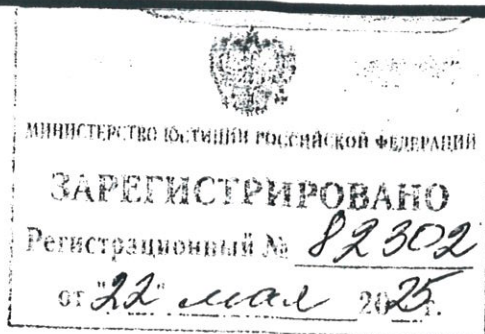 МИНИСТЕРСТВО ЮСТИЦИИ РОССИЙСКОЙ ФЕДЕРАЦИИ
ЗАРЕГИСТРИРОВАНО
Регистрационный № 82302
от "22" мая 2025г.